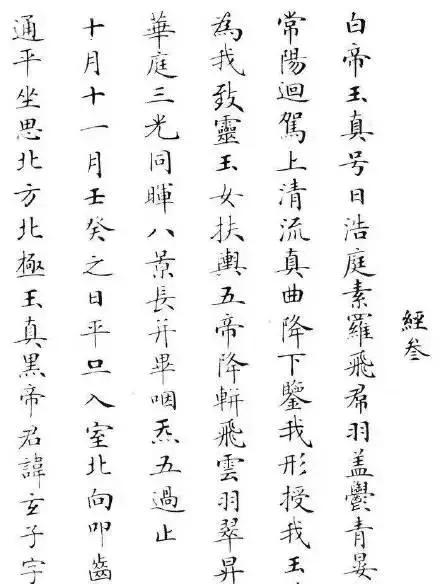 經叄
白帝玉真号曰浩庭素羅飛帬羽盖鬱青晏
常陽迴駕上清流真曲降下鑒我形授我玉
為我致靈玉女扶輿五帝降軿飛雲羽翠昇
華庭三光同暉八景長并畢咽炁五過止
十月十一月壬癸之日平旦入室北向叩齒
通平坐思北方北極玉真黑帝君諱玄子字